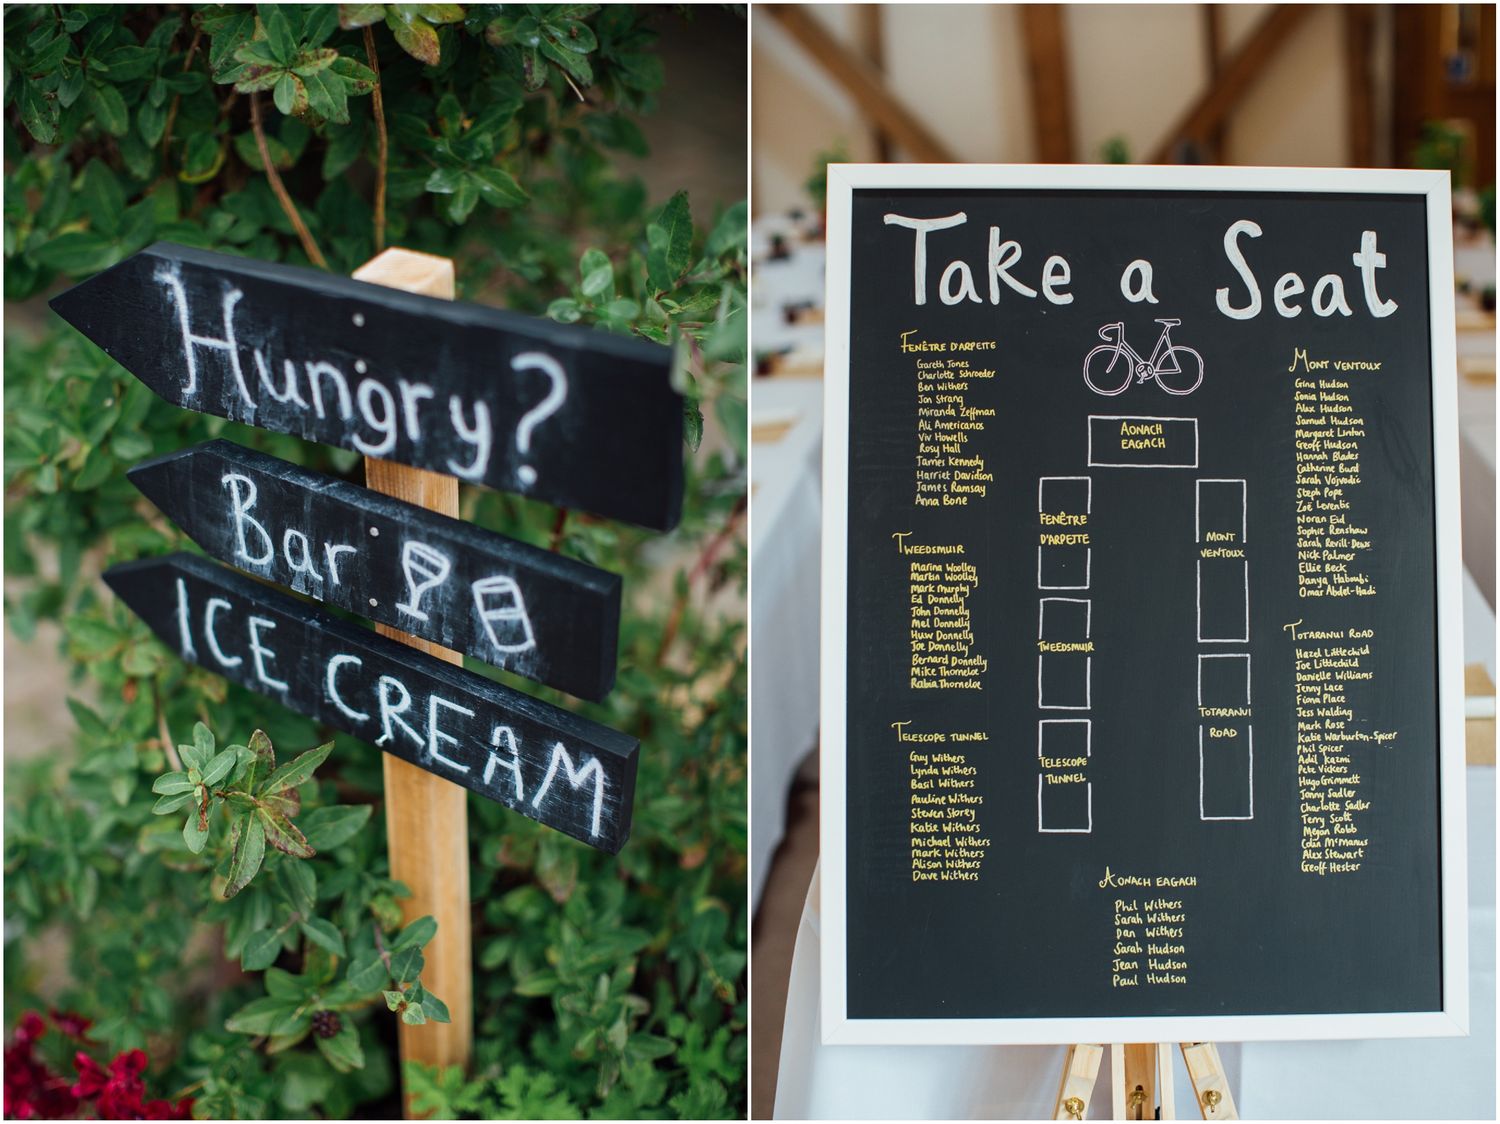 Hungry?
Bar
ICE CREAM
Take a Seat
FENÊTRE D'ARPETTE
Gareth Jones
Charlotte Schroeder
Ben Withers
Jon Strang
Miranda Zeffman
Ali Americanos
Viv Howells
Rosy Hall
James Kennedy
Harriet Davidson
James Ramsay
Anna Bone
TWEEDSMUIR
Marina Woolley
Martin Woolley
Mark Murphy
Ed Donnelly
John Donnelly
Mel Donnelly
Huw Donnelly
Joe Donnelly
Bernard Donnelly
Mike Thorneloe
Rabia Thorneloe
TELESCOPE TUNNEL
Guy Withers
Lynda Withers
Basil Withers
Pauline Withers
Steven Storey
Katie Withers
Michael Withers
Mark Withers
Alison Withers
Dave Withers
AONACH
EAGACH
FENÊTRE
D'ARPETTE
TWEEDSMUIR
TELESCOPE
TUNNEL
MONT
VENTOUX
TOTARANUI
ROAD
AONACH EAGACH
Phil Withers
Sarah Withers
Dan Withers
Sarah Hudson
Jean Hudson
Paul Hudson
MONT VENTOUX
Gina Hudson
Sonia Hudson
Alex Hudson
Samuel Hudson
Margaret Linton
Geoff Hudson
Hannah Blades
Catherine Burd
Sarah Vojvodic
Steph Pope
Zoë Leventis
Noran Eid
Sophie Renshaw
Sarah Revill-Dews
Nick Palmer
Ellie Beck
Danya Haboubi
Omar Abdel-Hadi
TOTARANUI ROAD
Hazel Littlechild
Joe Littlechild
Danielle Williams
Jenny Lace
Fiona Place
Jess Walding
Mark Rose
Katie Warburton-Spicer
Phil Spicer
Adil Kazmi
Pete Vickers
Hugo Grimmett
Jonny Sadler
Charlotte Sadler
Terry Scott
Megan Robb
Colin McManus
Alex Stewart
Geoff Hester